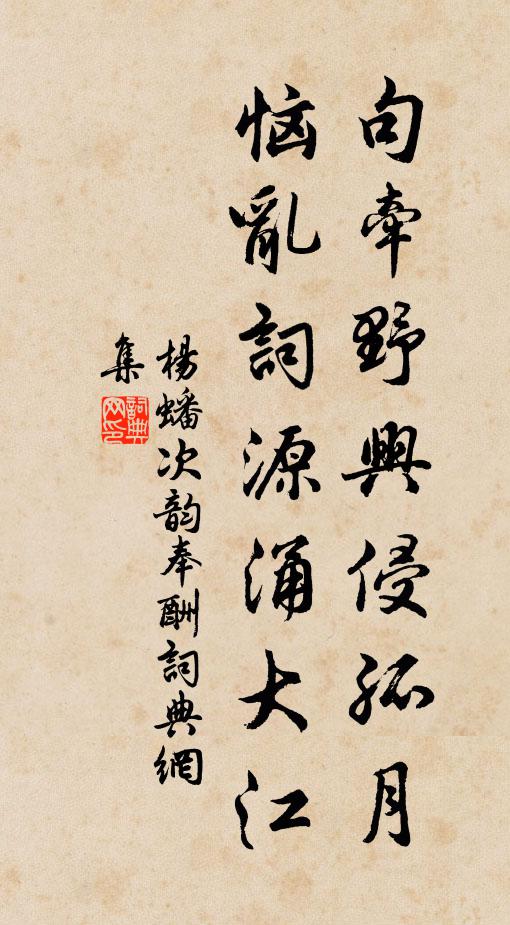 句牽野興侵孤月
惱亂詞源涌大江
楊蟠次韵奉酬詞典網
集
詞典网印